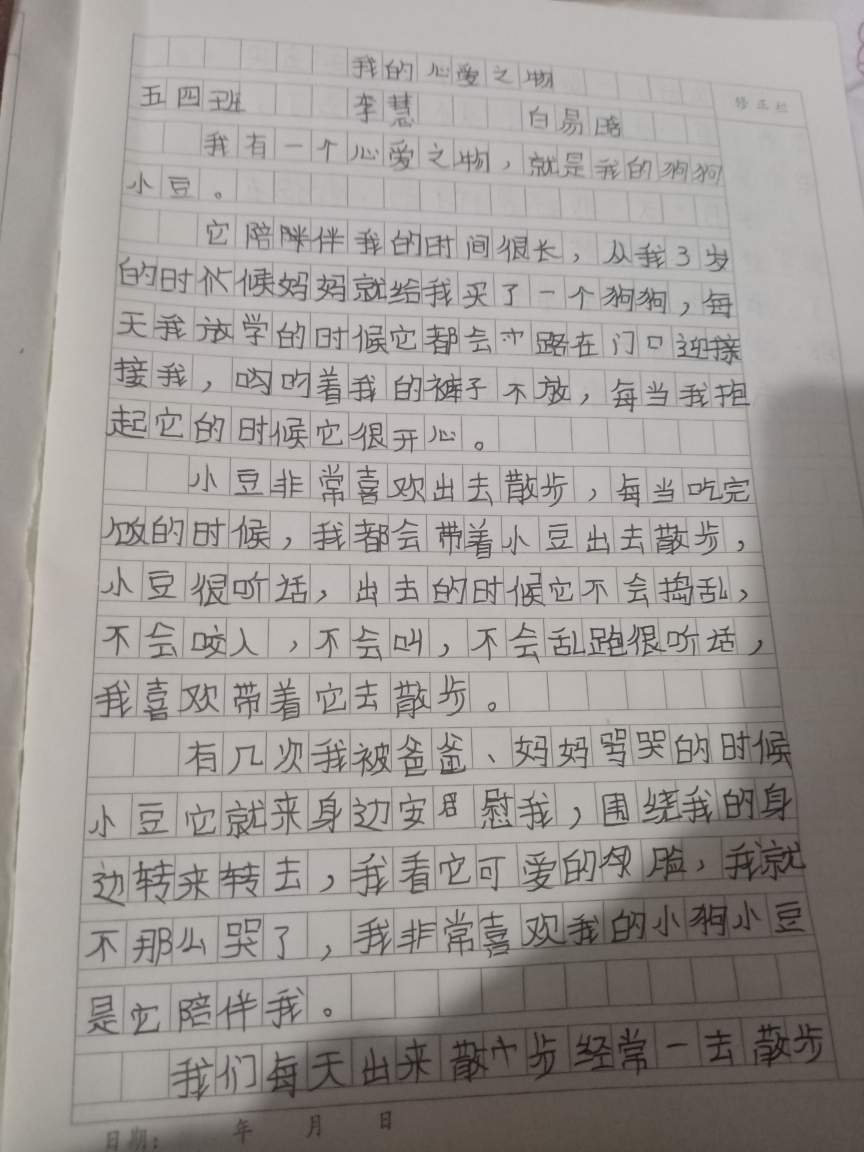 我的心爱之物
修正栏
五四班 李慧 白易
我有一个心爱之物，就是我的狗狗
小豆。
它陪伴我的时间很长，从我3岁
的时候妈妈就给我买了一个狗狗，每
天我放学的时候它都会路在门口迎接
接我，着我的裤子不放，每当我抱
起它的时候它很开心。
小豆非常喜欢出去散步，每当吃完
饭的时候，我都会带着小豆出去散步，
小豆很听话，出去的时候它不会捣乱，
不会咬人，不会叫，不会乱跑很听话，
我喜欢带着它去散步。
有几次我被爸爸、妈妈骂哭的时候
小豆它就来身边安慰我，围绕我的身
边转来转去，我看它可爱的脸，我就
不那么哭了，我非常喜欢我的小狗小豆
是它陪伴我。
我们每天出来散步经常一去散步
日期： 年 月 日